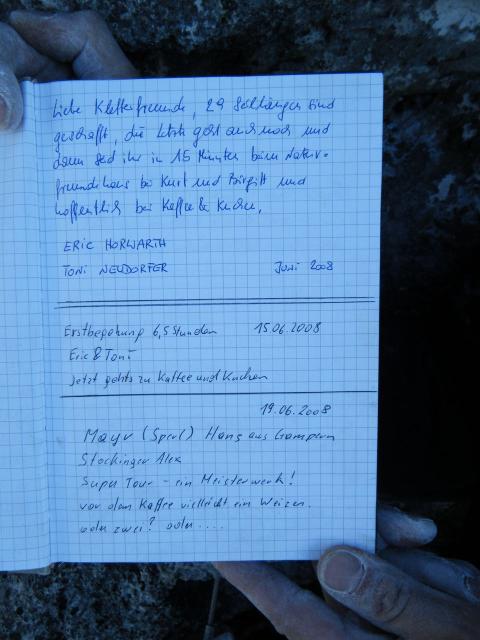 Liebe Kletterfreunde, 29 Seillängen sind
geschafft, die letzte geht auch noch und
dann seid ihr in 15 Minuten beim Natur-
freundehaus bei Kurt und Birgitt und
hoffentlich bei Kaffee & Kuchen.
ERIC HORWARTH
TONI NEUDORFER JUNI 2008
Erstbegehung 6,5 Stunden 15.06.2008
Eric & Toni
Jetzt gehts zu Kaffee und Kuchen
19.06.2008
Mayr (Sperl) Hans aus Gampern
Stockinger Alex
Super Tour - ein Meisterwerk!
vor dem Kaffee vielleicht ein Weizen.
oder zwei? oder ....